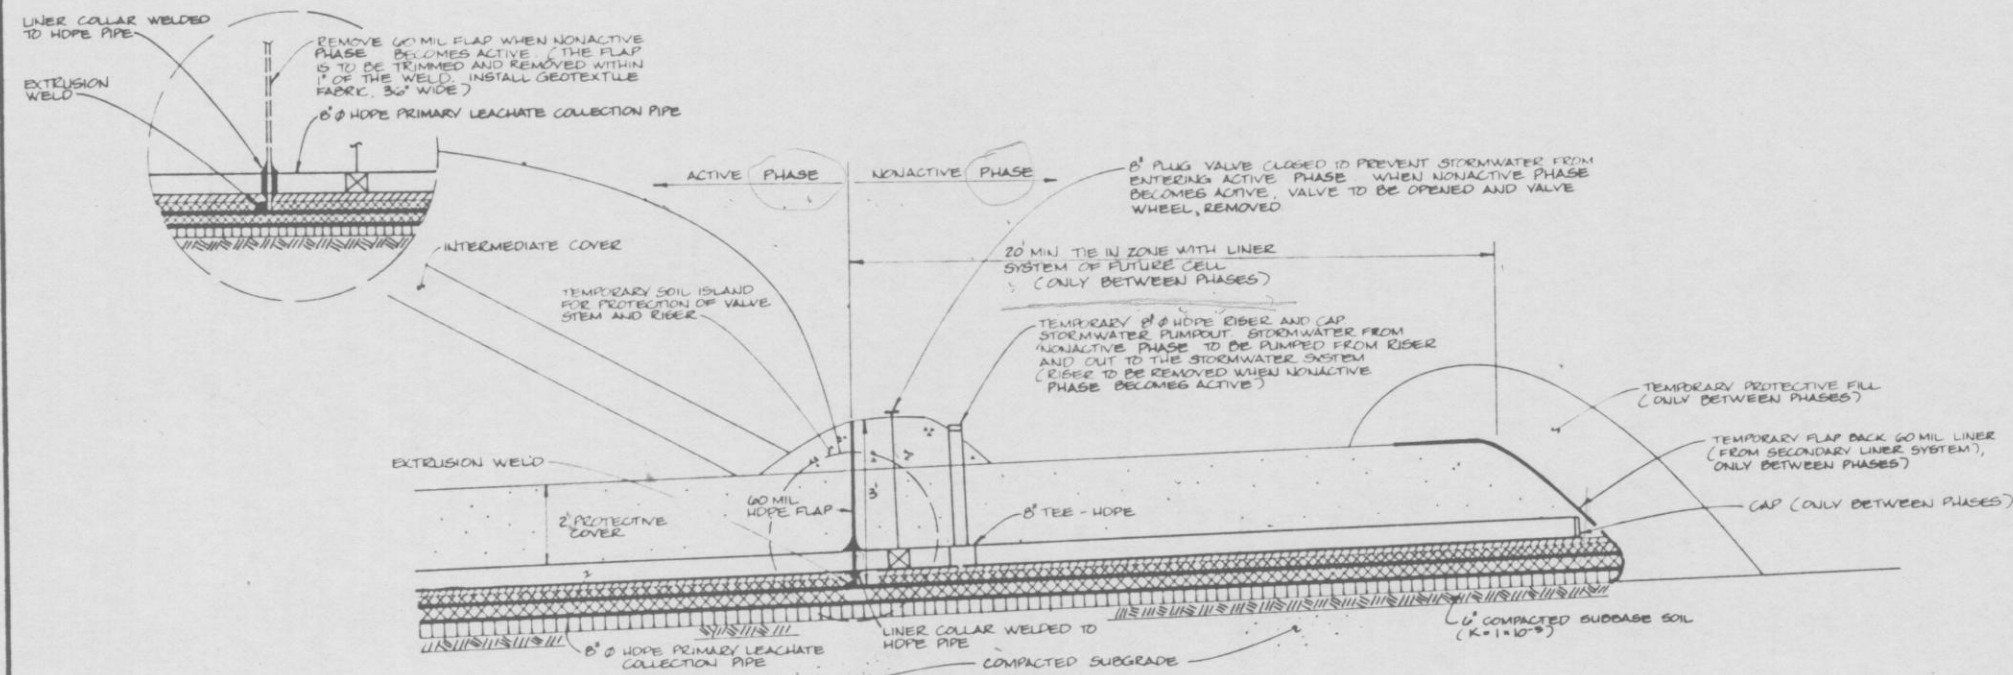 LINER COLLAR WELDED
TO HDPE PIPE
REMOVE 60 MIL FLAP WHEN NONACTIVE
PHASE BECOMES ACTIVE. (THE FLAP
IS TO BE TRIMMED AND REMOVED WITHIN
1" OF THE WELD. INSTALL GEOTEXTILE
FABRIC, 36" WIDE)
EXTRUSION
WELD
8" Ø HDPE PRIMARY LEACHATE COLLECTION PIPE
ACTIVE PHASE
NONACTIVE PHASE
8" PLUG VALVE CLOSED TO PREVENT STORMWATER FROM
ENTERING ACTIVE PHASE. WHEN NONACTIVE PHASE
BECOMES ACTIVE, VALVE TO BE OPENED AND VALVE
WHEEL, REMOVED
INTERMEDIATE COVER
20' MIN TIE IN ZONE WITH LINER
SYSTEM OF FUTURE CELL
(ONLY BETWEEN PHASES)
TEMPORARY SOIL ISLAND
FOR PROTECTION OF VALVE
STEM AND RISER
TEMPORARY 8" Ø HDPE RISER AND CAP
STORMWATER PUMPOUT. STORMWATER FROM
NONACTIVE PHASE TO BE PUMPED FROM RISER
AND OUT TO THE STORMWATER SYSTEM
(RISER TO BE REMOVED WHEN NONACTIVE
PHASE BECOMES ACTIVE)
TEMPORARY PROTECTIVE FILL
(ONLY BETWEEN PHASES)
TEMPORARY FLAP BACK 60 MIL LINER
(FROM SECONDARY LINER SYSTEM),
ONLY BETWEEN PHASES)
EXTRUSION WELD
60 MIL
HDPE FLAP
3'
8" TEE - HDPE
CAP (ONLY BETWEEN PHASES)
2' PROTECTIVE
COVER
8" Ø HDPE PRIMARY LEACHATE
COLLECTION PIPE
LINER COLLAR WELDED TO
HDPE PIPE
COMPACTED SUBGRADE
6" COMPACTED SUBBASE SOIL